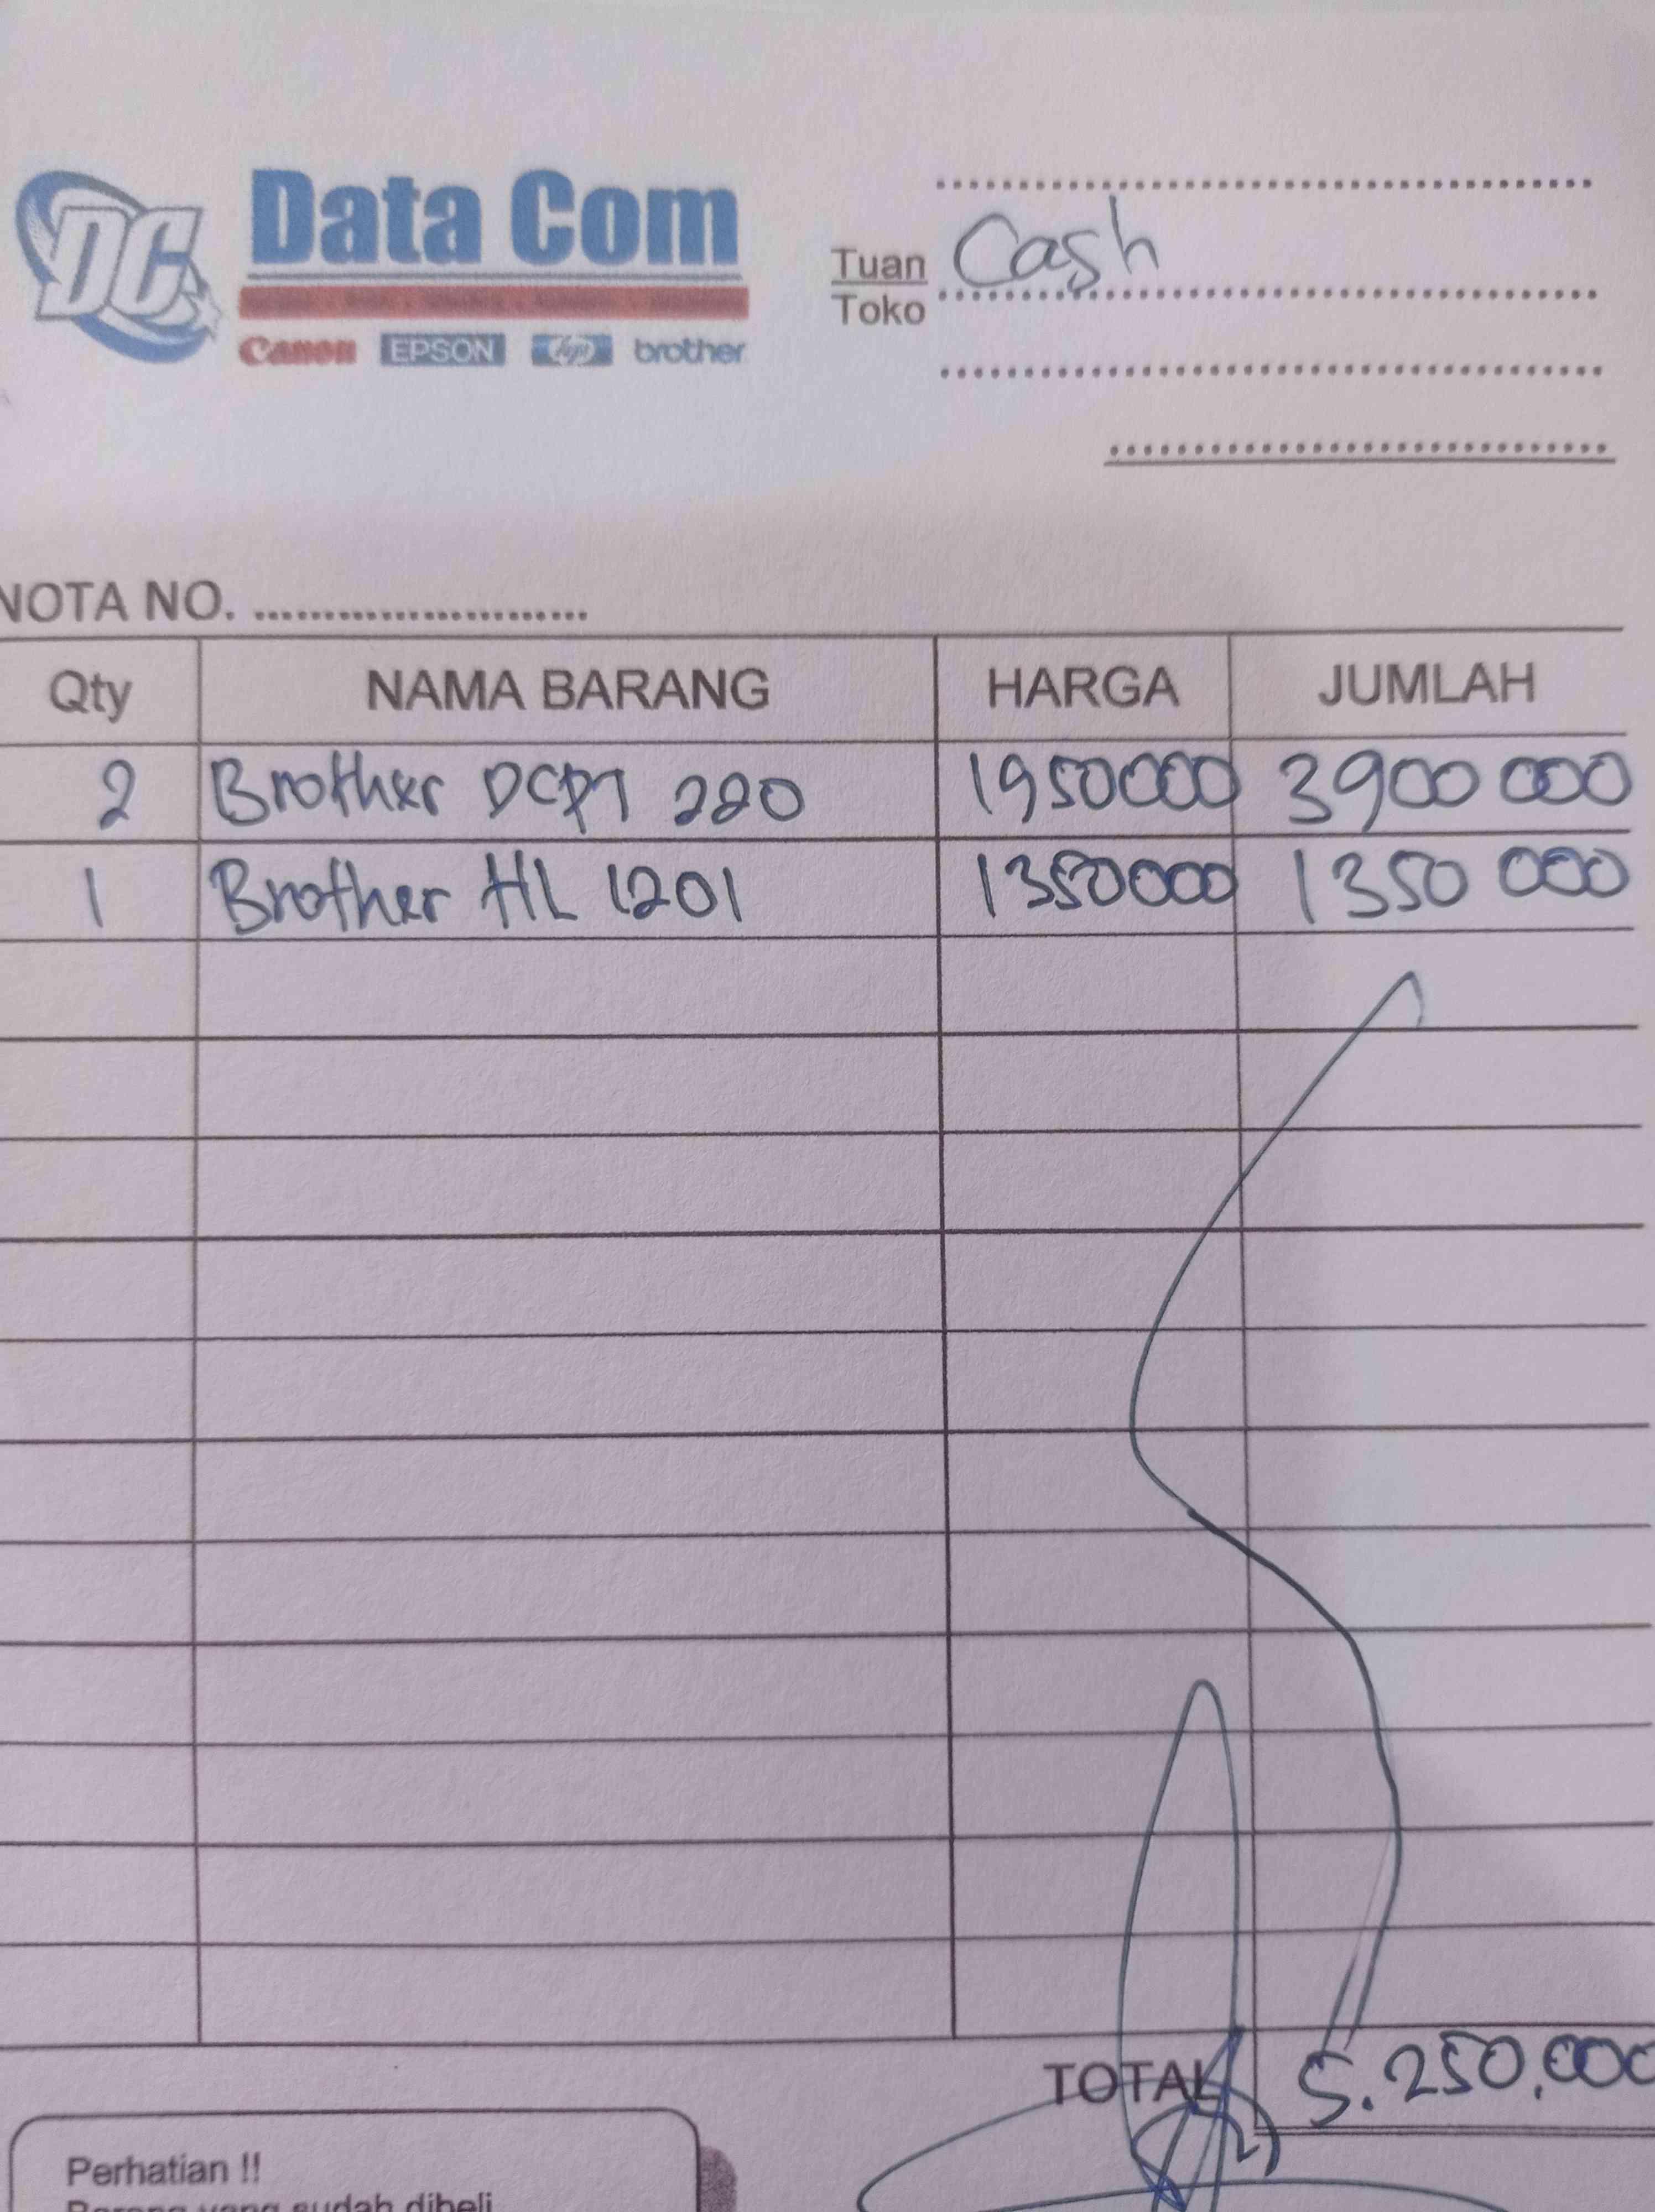 DC Data Com
Canon EPSON hp brother
Tuan Cash
Toko
NOTA NO.
Qty NAMA BARANG HARGA JUMLAH
2 Brother DCPT 220 1950000 3900 000
1 Brother HL 1201 1350000 1350 000
TOTAL 5.250,000
Perhatian !!
Barang yang sudah dibeli